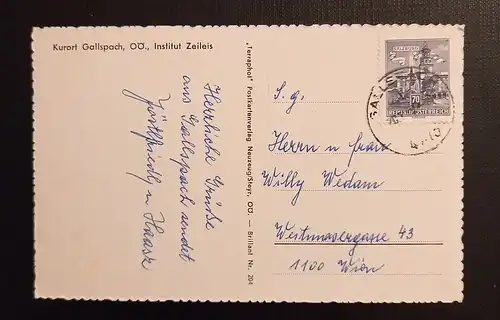 Kurort Gallspach, OÖ., Institut Zeileis
Herrliche Grüße
aus Gallspach sendet
u Haase
„Terraphot" Postkartenverlag Neuzeug/Steyr, OÖ. — Brillant Nr. 204
S. g.
Herrn u frau
Willy Wedam
43
1100 Wien
SALZBURG
70
REPUBLIK ÖSTERREICH
GALLSPACH